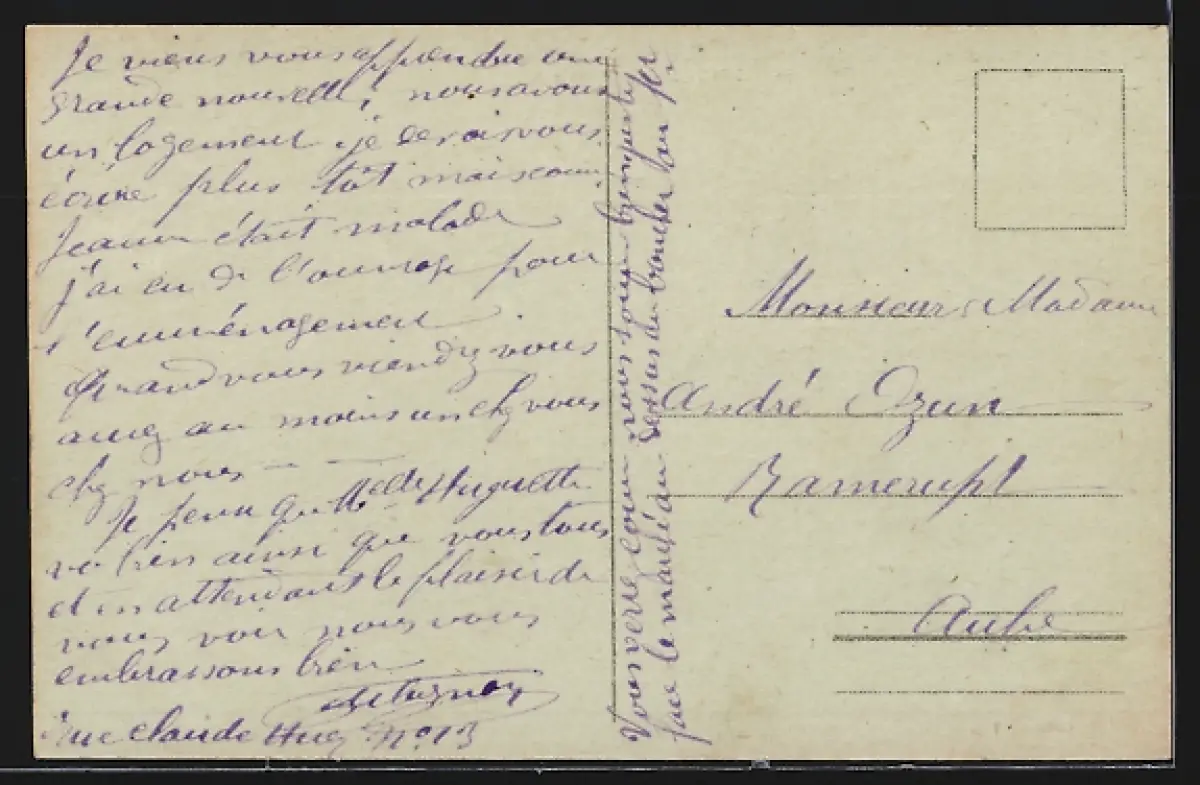 Je viens vous apprendre une
grande nouvelle, nous avons
un logement je devais vous
écrire plus tôt mais comme
Jeanne était malade
j'ai eu de l'ouvrage pour
l'emménagement
Quand vous viendrez vous
aurez au moins un chez vous
chez nous
Je pense que Huguette
va bien ainsi que vous tous
et en attendant le plaisir de
vous voir nous vous
embrassons bien
Rue Claude Huez N° 13
Vous verrez comme nous sommes bien
face le marché au dessus du boucher
Monsieur Madame
André Ozun
Ramerupt
Aube